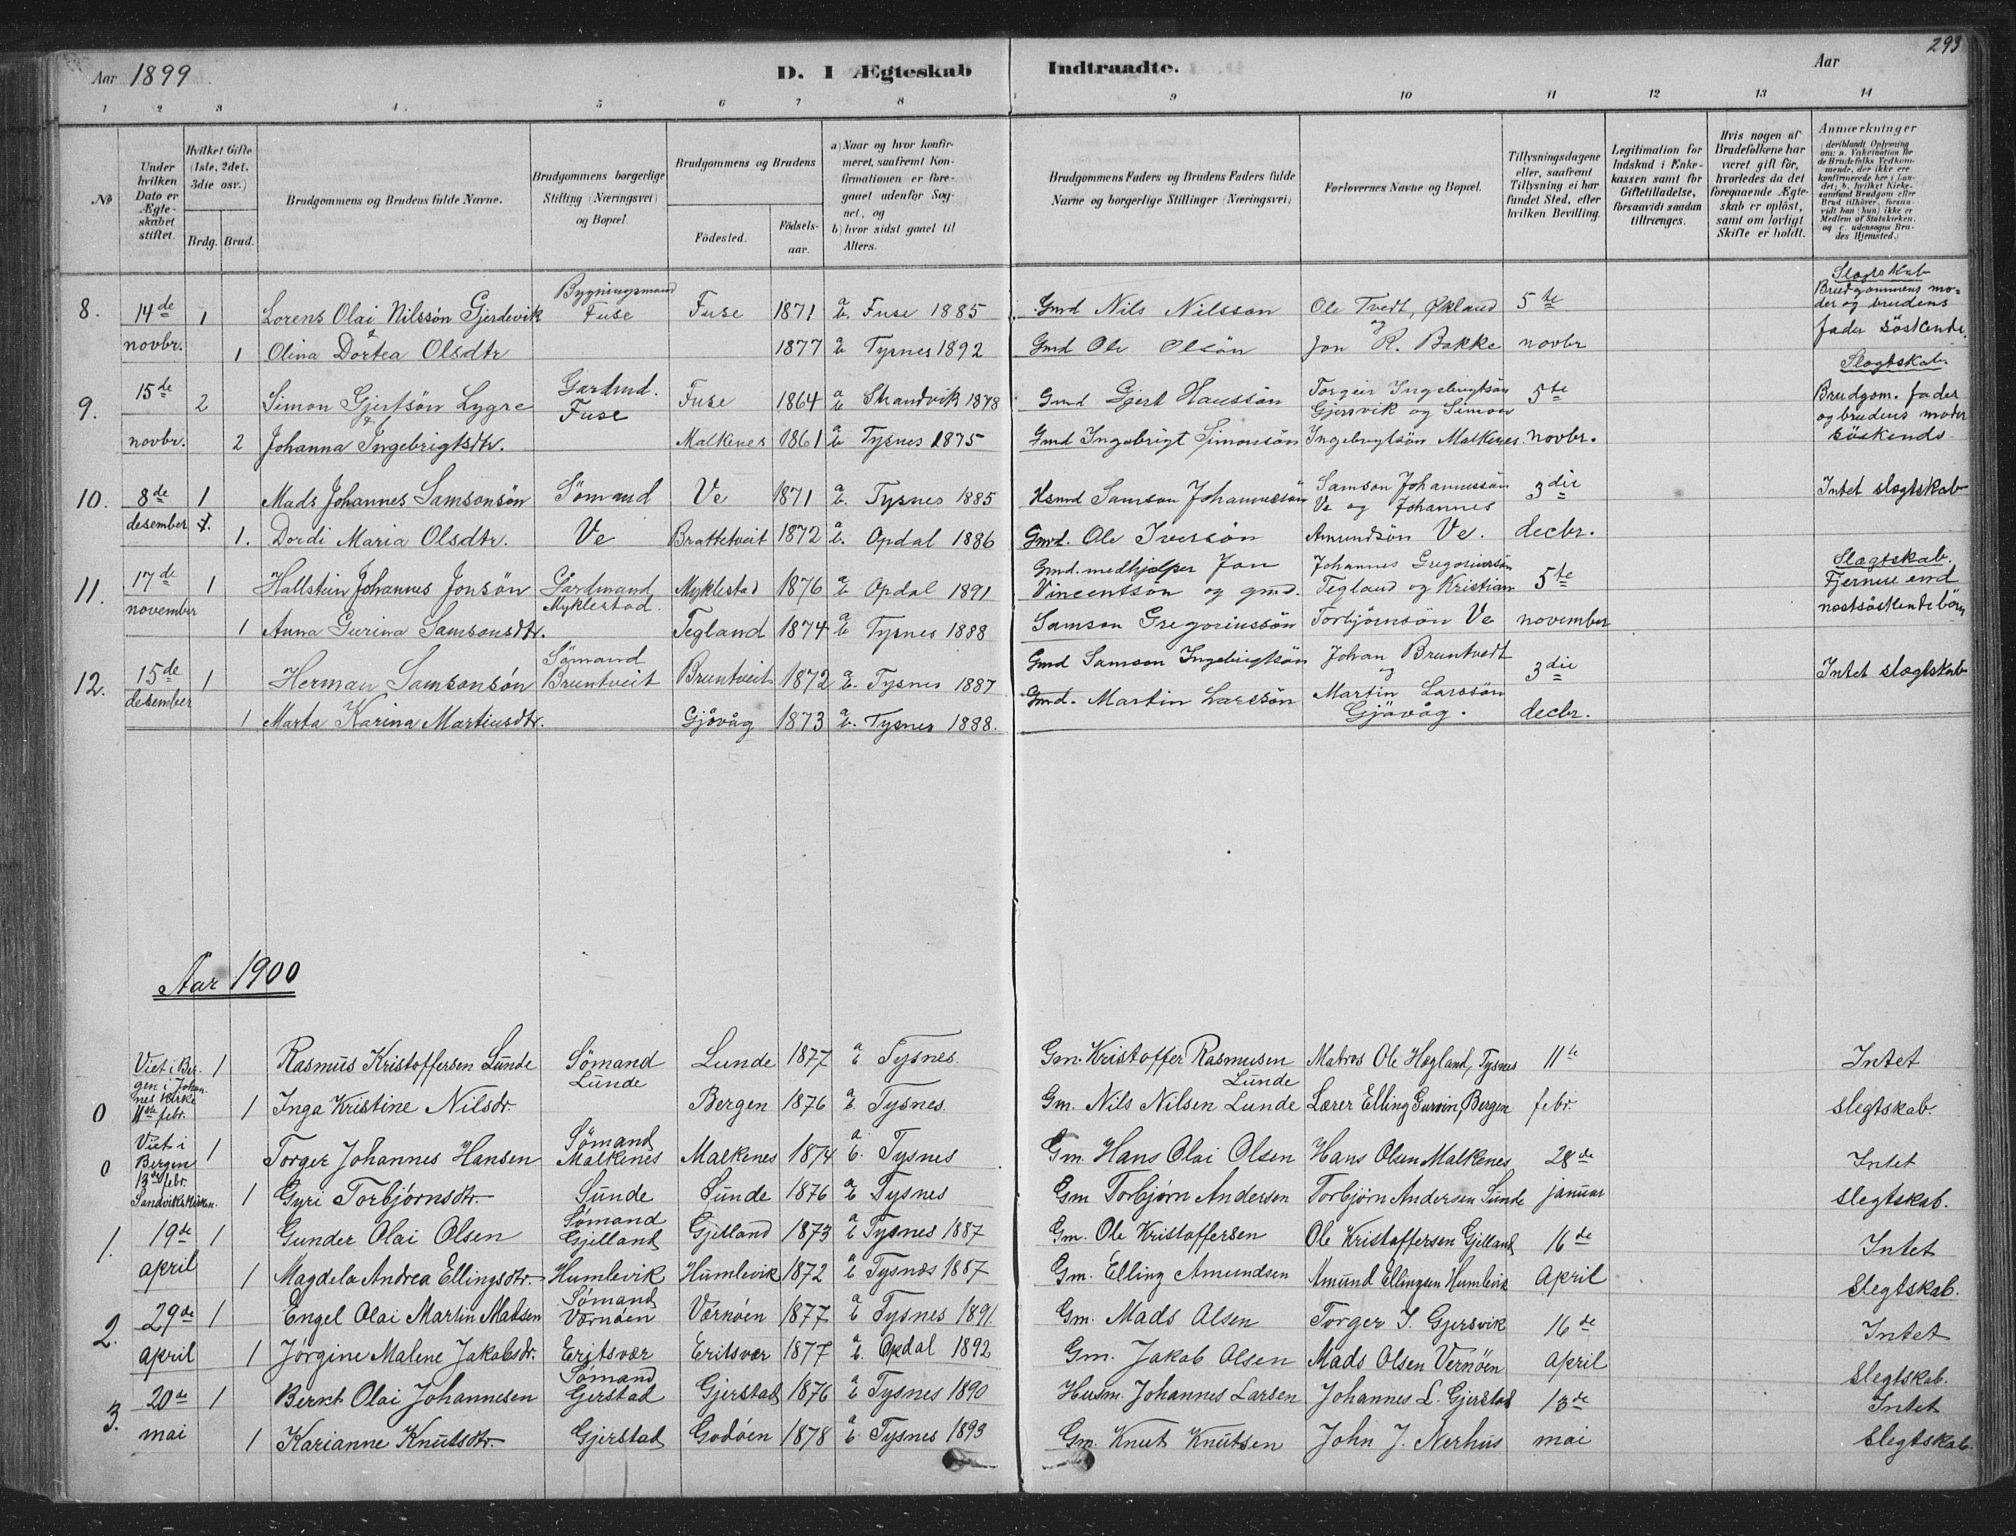 293
Aar 1899
D. I Ægteskab Indtraadte.
Aar
1 2 3 4 5 6 7 8 9 10 11 12 13 14
No
Under hvilken Dato er Ægteskabet stiftet.
Hvilket Gifte (1ste, 2det, 3die osv.)
Brdg. Brud.
Brudgommens og Brudens fulde Navne.
Brudgommens borgerlige Stilling (Næringsvei) og Bopæl.
Brudgommens og Brudens
Fødested.
Fødselsaar.
a) Naar og hvor konfirmeret, saafremt Konfirmationen er foregaaet udenfor Sognet, og
b) hvor sidst gaaet til Alters.
Brudgommens Faders og Brudens Faders fulde Navne og borgerlige Stillinger (Næringsvei)
Forlovernes Navne og Bopæl.
Tillysningsdagene eller, saafremt Tillysning ei har fundet Sted, efter hvilken Bevilling.
Legitimation for Indskud i Enkekassen samt for Giftetilladelse, forsaavidt saadan tiltrænges.
Hvis nogen af Brudefolkene har været gift før, hvorledes da det foregaaende Ægteskab er opløst, samt om lovligt Skifte er holdt.
Anmærkninger (deriblandt Oplysning om: a. Vakcination for de Brudefolks Vedkommende, der ikke ere konfirmerede her i Landet; b. hvilket Kirkesamfund Brudgom eller Brud tilhører, forsaavidt han (hun) ikke er Medlem af Statskirken, og c. udensogns Brudes Hjemsted.)
8. 14de 1 Lorens Olai Nilssön Gjerdevik Bygningsmand Fuse Fuse 1871 a b. Fuse 1885 Gmd Nils Nilsson Ole Tvedt, Økland 5te Slægtskab Brudgommens moder og brudens
novbr. 1 Olina Dortea Olsdtr 1877 a b Tysnes 1892 Gmd Ole Olsön og Jon R. Bakke novbr fader söskende.
9. 15de 2 Simon Gjertsön Lygre Gardmd. Fuse Fuse 1864 a b Strandvik 1878 Gmd Gjert Hanssön Torgeir Ingebrigtsön Gjersvik og Simon 5te Slægtskab Brudgom. fader
novbr. 2 Johanna Ingebrigtsdtr. Malkenes 1861 a b Tysnes 1875 Gmd Ingebrigt Simonsön Ingebrigtsön Malkenes novbr. og brudens moder söskende.
10. 8de 1 Mads Johannes Samsonsön Sömand Ve 1871 a b. Tysnes 1885 Hsmd Samson Johannessön Samson Johannessön Ve og Johannes 3die Intet slægtskab
desember 1. Dordi Maria Olsdtr. Ve Brattetveit 1872 a b. Opdal 1886 Gmd. Ole Iversön Amundsön Ve. decbr.
11. 17de 1 Hallstein Johannes Jonsön Gardmand Myklestad. Myklestad 1876 a b Opdal 1891 Gmd. medhjelper Jon Vincentsön og gmd. Johannes Gregoriussön Tegland og Kristian 5te Slægtskab. Fjernere end
november 1 Anna Gurina Samsonsdtr. Tegland 1874 a b Tysnes 1888 Samson Gregoriussön Torbjörnsön Ve november næstsöskendebörn
12. 15de 1 Herman Samsonsön Sömand Bruntveit Bruntveit 1872 a b. Tysnes 1887 Gmd Samson Ingebrigtsön Johan Bruntvedt og 3die Intet slægtskab
desember 1 Marta Karina Martinsdtr. Gjövåg 1873 a b. Tysnes 1888. Gmd. Martin Larssön Martin Larssön Gjövåg. decbr.
Aar 1900
0 Viet i Bergen i Johannes kirke 11te febr. 1 Rasmus Kristoffersen Lunde Sömand Lunde Lunde 1877 a b Tysnes Gm. Kristoffer Rasmusen Lunde Matros Ole Hægland, Tysnes 11te Intet
1 Inga Kristine Nilsdr. Bergen 1876 a b. Tysnes. Gm. Nils Nilsen Lunde Lærer Elling Gurvin, Bergen febr. slegtskab.
0 Viet i Bergen 13de febr. Sandvikskirken. 1 Torger Johannes Hansen Sömand Malkenes Malkenes 1874 a b. Tysnes Gm. Hans Olai Olsen Hans Olsen Malkenes 28de Intet
1 Gyri Torbjørnsdtr. Sunde Sunde 1876 a b Tysnes Gm Torbjørn Andersen Torbjørn Andersen Sunde januar slegtskab.
1. 19de 1 Gunder Olai Olsen Sömand Gjelland Gjelland 1873 a b Tysnes 1887 Gm. Ole Kristoffersen Ole Kristoffersen Gjelland 16de Intet
april 1 Magdela Andrea Ellingsdtr. Humlevik Humlevik 1872 a b Tysnes 1887 Gm. Elling Amundsen Amund Ellingsen Humlevik April slegtskab.
2. 29de 1 Engel Olai Martin Madsen Sömand Værnöen Værnöen 1877 a b Tysnes 1891 Gm. Mads Olsen Torger I. Gjersvik 16de Intet
april 1 Jørgine Malene Jakobsdr. Eritsvær Eritsvær 1877 a b. Opdal 1892 Gm. Jakob Olsen Mads Olsen Vernöen april slegtskab.
3. 20de 1 Bernt Olai Johannesen Sömand Gjerstad Gjerstad 1876 a b Tysnes 1890 Husm. Johannes Larsen Johannes L. Gjerstad 13de Intet
mai 1 Karianne Knutsdtr. Gjerstad Godöen 1878 a b. Tysnes 1893 Gm. Knut Knutsen John J. Nerhus mai slegtskab.